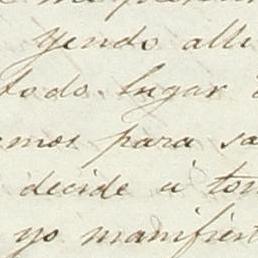 yendo alli
todo lugar
emos para sa
decide á tom
yo manifiest